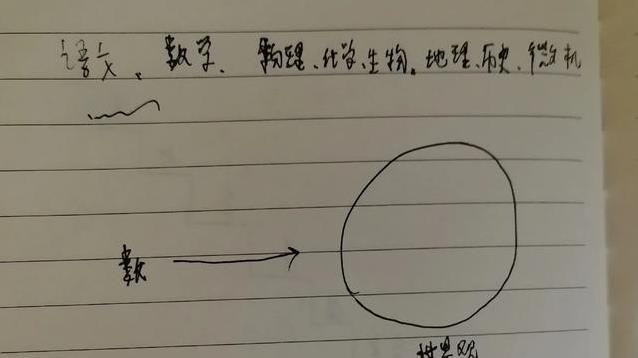 语文、数学、物理、化学、生物、地理、历史、微机
数
世界观